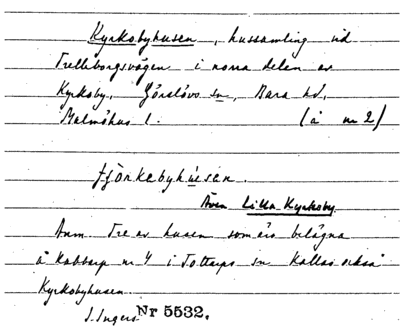 Kyrkobyhusen, hussamling vid
Trelleborgsvägen i norra delen av
Kyrkoby, Görslövs sn, Bara hd,
Malmöhus l. (å nr 2)
tjörkebyhusen.
Även Lilla Kyrkoby.
Anm. Tre av husen som äro belägna
å Kabbarp nr 4 i Tottarps sn kallas också
Kyrkobyhusen.
J. Ingers Nr 5532.